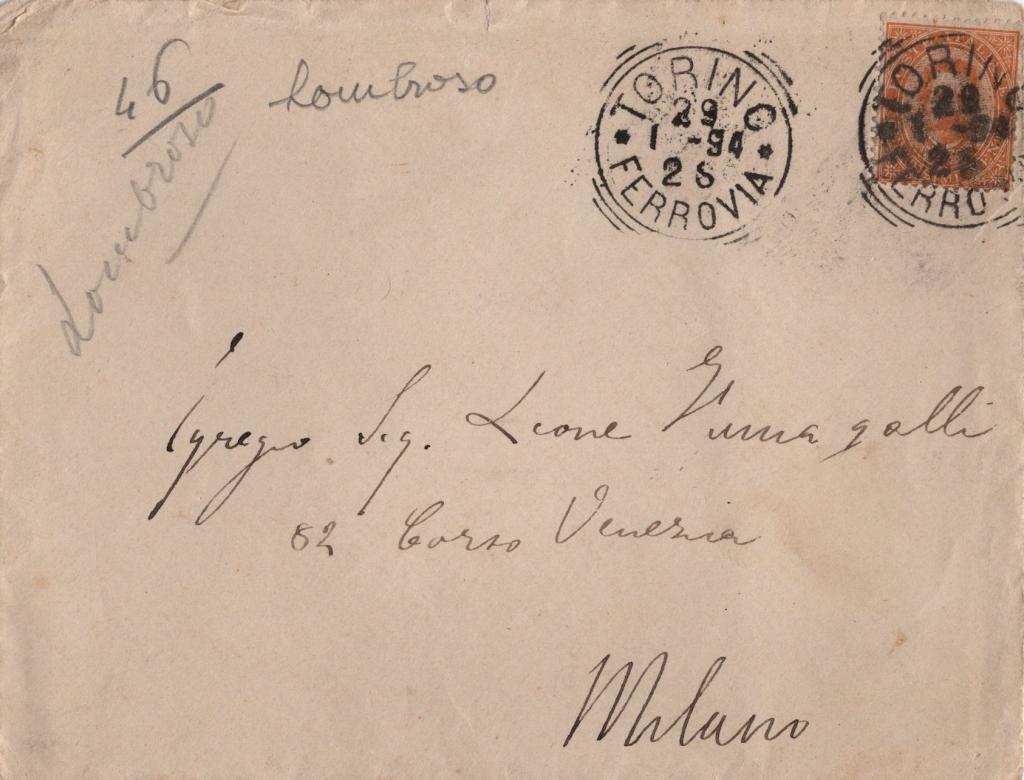 46
Lombroso
Lombroso
TORINO
29
1 -94
2S
FERROVIA
TORINO
29
1 -94
2S
FERRO
Egregio Sig. Leone Fumagalli
82 Corso Venezia
Milano